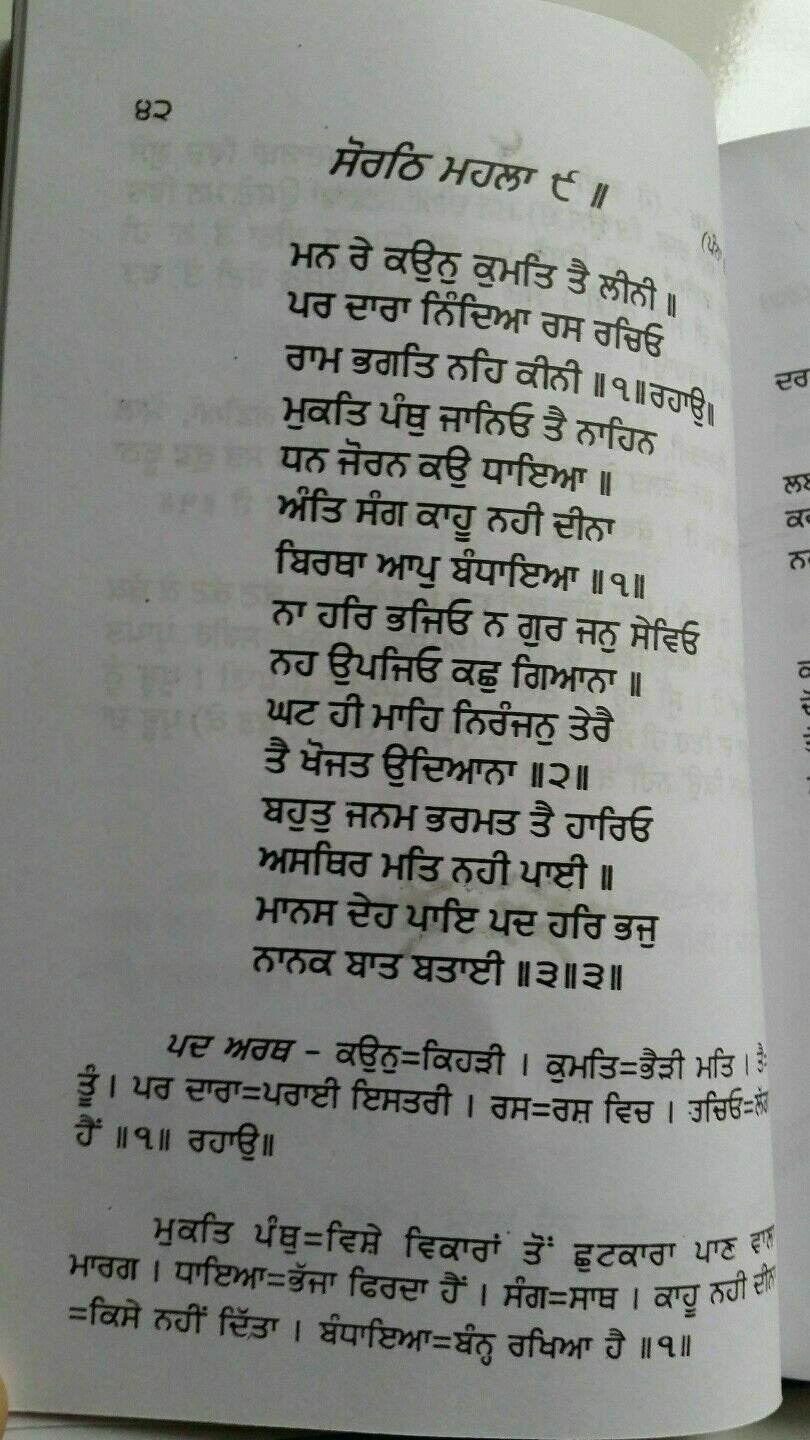 ੪੨
ਸੋਰਠਿ ਮਹਲਾ ੯ ॥
ਮਨ ਰੇ ਕਉਨੁ ਕੁਮਤਿ ਤੈ ਲੀਨੀ ॥
ਪਰ ਦਾਰਾ ਨਿੰਦਿਆ ਰਸ ਰਚਿਓ
ਰਾਮ ਭਗਤਿ ਨਹਿ ਕੀਨੀ ॥੧॥ਰਹਾਉ॥
ਮੁਕਤਿ ਪੰਥੁ ਜਾਨਿਓ ਤੈ ਨਾਹਿਨ
ਧਨ ਜੋਰਨ ਕਉ ਧਾਇਆ ॥
ਅੰਤਿ ਸੰਗ ਕਾਹੂ ਨਹੀ ਦੀਨਾ
ਬਿਰਥਾ ਆਪੁ ਬੰਧਾਇਆ ॥੧॥
ਨਾ ਹਰਿ ਭਜਿਓ ਨ ਗੁਰ ਜਨੁ ਸੇਵਿਓ
ਨਹ ਉਪਜਿਓ ਕਛੁ ਗਿਆਨਾ ॥
ਘਟ ਹੀ ਮਾਹਿ ਨਿਰੰਜਨੁ ਤੇਰੈ
ਤੈ ਖੋਜਤ ਉਦਿਆਨਾ ॥੨॥
ਬਹੁਤੁ ਜਨਮ ਭਰਮਤ ਤੈ ਹਾਰਿਓ
ਅਸਥਿਰ ਮਤਿ ਨਹੀ ਪਾਈ ॥
ਮਾਨਸ ਦੇਹ ਪਾਇ ਪਦ ਹਰਿ ਭਜੁ
ਨਾਨਕ ਬਾਤ ਬਤਾਈ ॥੩॥੩॥
ਪਦ ਅਰਥ - ਕਉਨੁ=ਕਿਹੜੀ । ਕੁਮਤਿ=ਭੈੜੀ ਮਤਿ । ਤੈ=
ਤੂੰ । ਪਰ ਦਾਰਾ=ਪਰਾਈ ਇਸਤਰੀ । ਰਸ=ਰਸ਼ ਵਿਚ । ਰਚਿਓ=
ਹੈਂ ॥੧॥ ਰਹਾਉ॥
ਮੁਕਤਿ ਪੰਥੁ=ਵਿਸ਼ੇ ਵਿਕਾਰਾਂ ਤੋਂ ਛੁਟਕਾਰਾ ਪਾਣ
ਮਾਰਗ । ਧਾਇਆ=ਭੱਜਾ ਫਿਰਦਾ ਹੈਂ । ਸੰਗ=ਸਾਥ । ਕਾਹੂ ਨਹੀ ਦੀਨਾ
=ਕਿਸੇ ਨਹੀਂ ਦਿੱਤਾ । ਬੰਧਾਇਆ=ਬੰਨ੍ਹ ਰਖਿਆ ਹੈ ॥੧॥